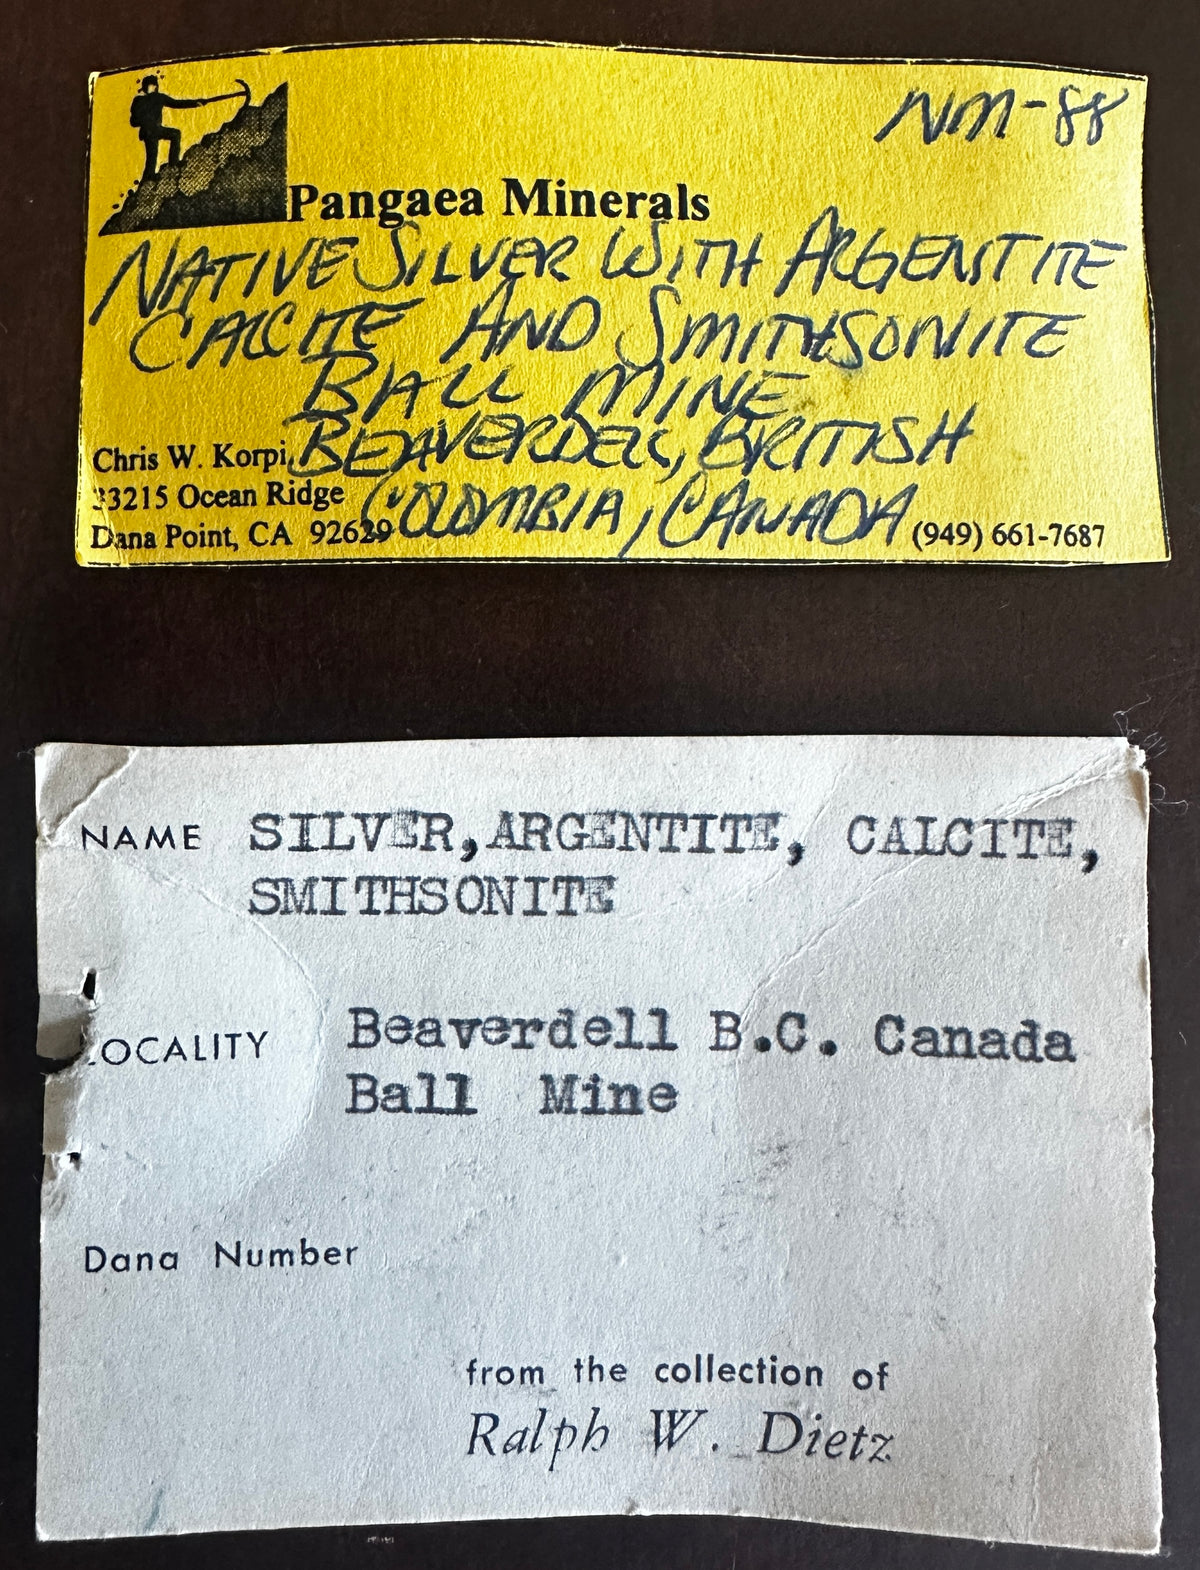 NM-88
Pangaea Minerals
NATIVE SILVER WITH ARGENTITE
CALCITE AND SMITHSONITE
BALL MINE
BEAVERDELL, BRITISH
COLOMBIA, CANADA
Chris W. Korpi
33215 Ocean Ridge
Dana Point, CA 92629
(949) 661-7687
NAME SILVER, ARGENTITE, CALCITE,
SMITHSONITE
LOCALITY Beaverdell B.C. Canada
Ball Mine
Dana Number
from the collection of
Ralph W. Dietz